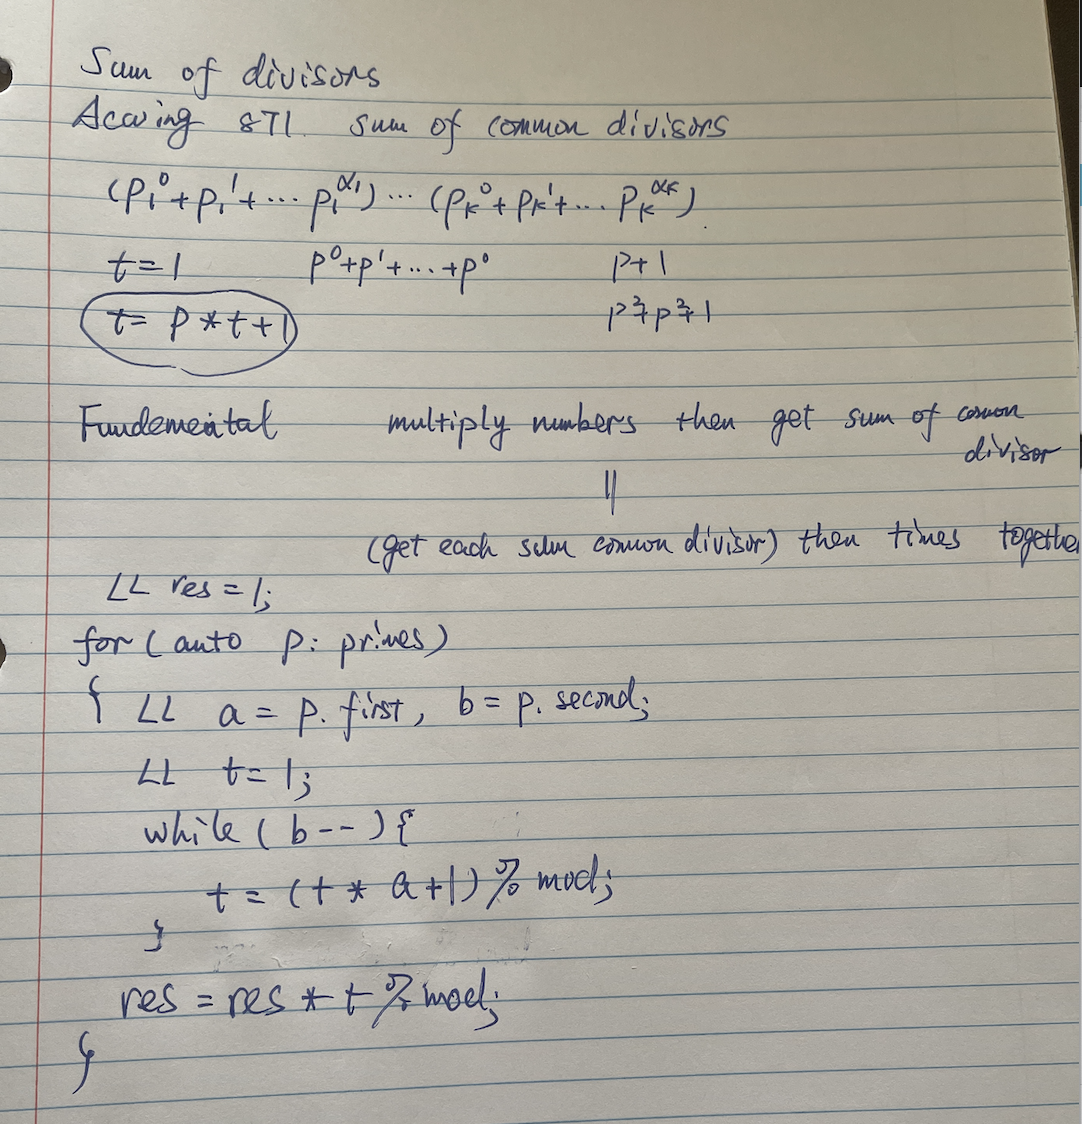 Sum of divisors
Acwing 871. sum of common divisors
(p₁⁰+p₁¹+...p₁^α₁)...(pₖ⁰+pₖ¹+...pₖ^αₖ)
t=1 p⁰+p¹+...+p⁰ p+1
t= p*t+1 p²+p²+1
Fundemental multiply numbers then get sum of comon
divisor
||
(get each sum comon divisor) then times togethe
LL res=1;
for(auto p: primes)
{ LL a=p.first, b=p.second;
LL t=1;
while(b--){
t=(t*a+1)%mod;
}
res=res*t%mod;
}